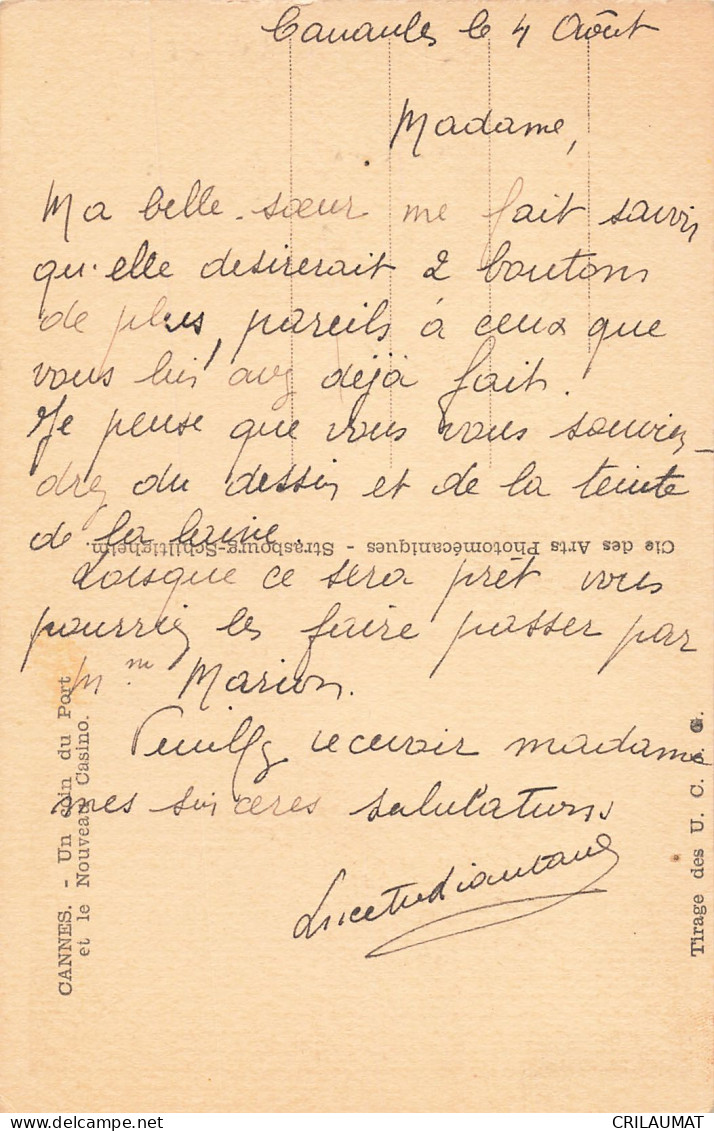 Canaules le 4 Août
Madame,
Ma belle-sœur me fait savoir
qu'elle desirerait 2 boutons
de plus, pareils à ceux que
vous lui avez déjà fait.
Je pense que vous vous souvien-
drez du dessin et de la teinte
de la laine.
Lorsque ce sera prêt vous
pourriez les faire passer par
Mme Marion.
Veuillez recevoir madame
mes sincères salutations
Cie des Arts Photomécaniques - Strasbourg-Schiltigheim.
CANNES. - Un coin du Port
et le Nouveau Casino.
Tirage des U. C. G.
CRILAUMAT